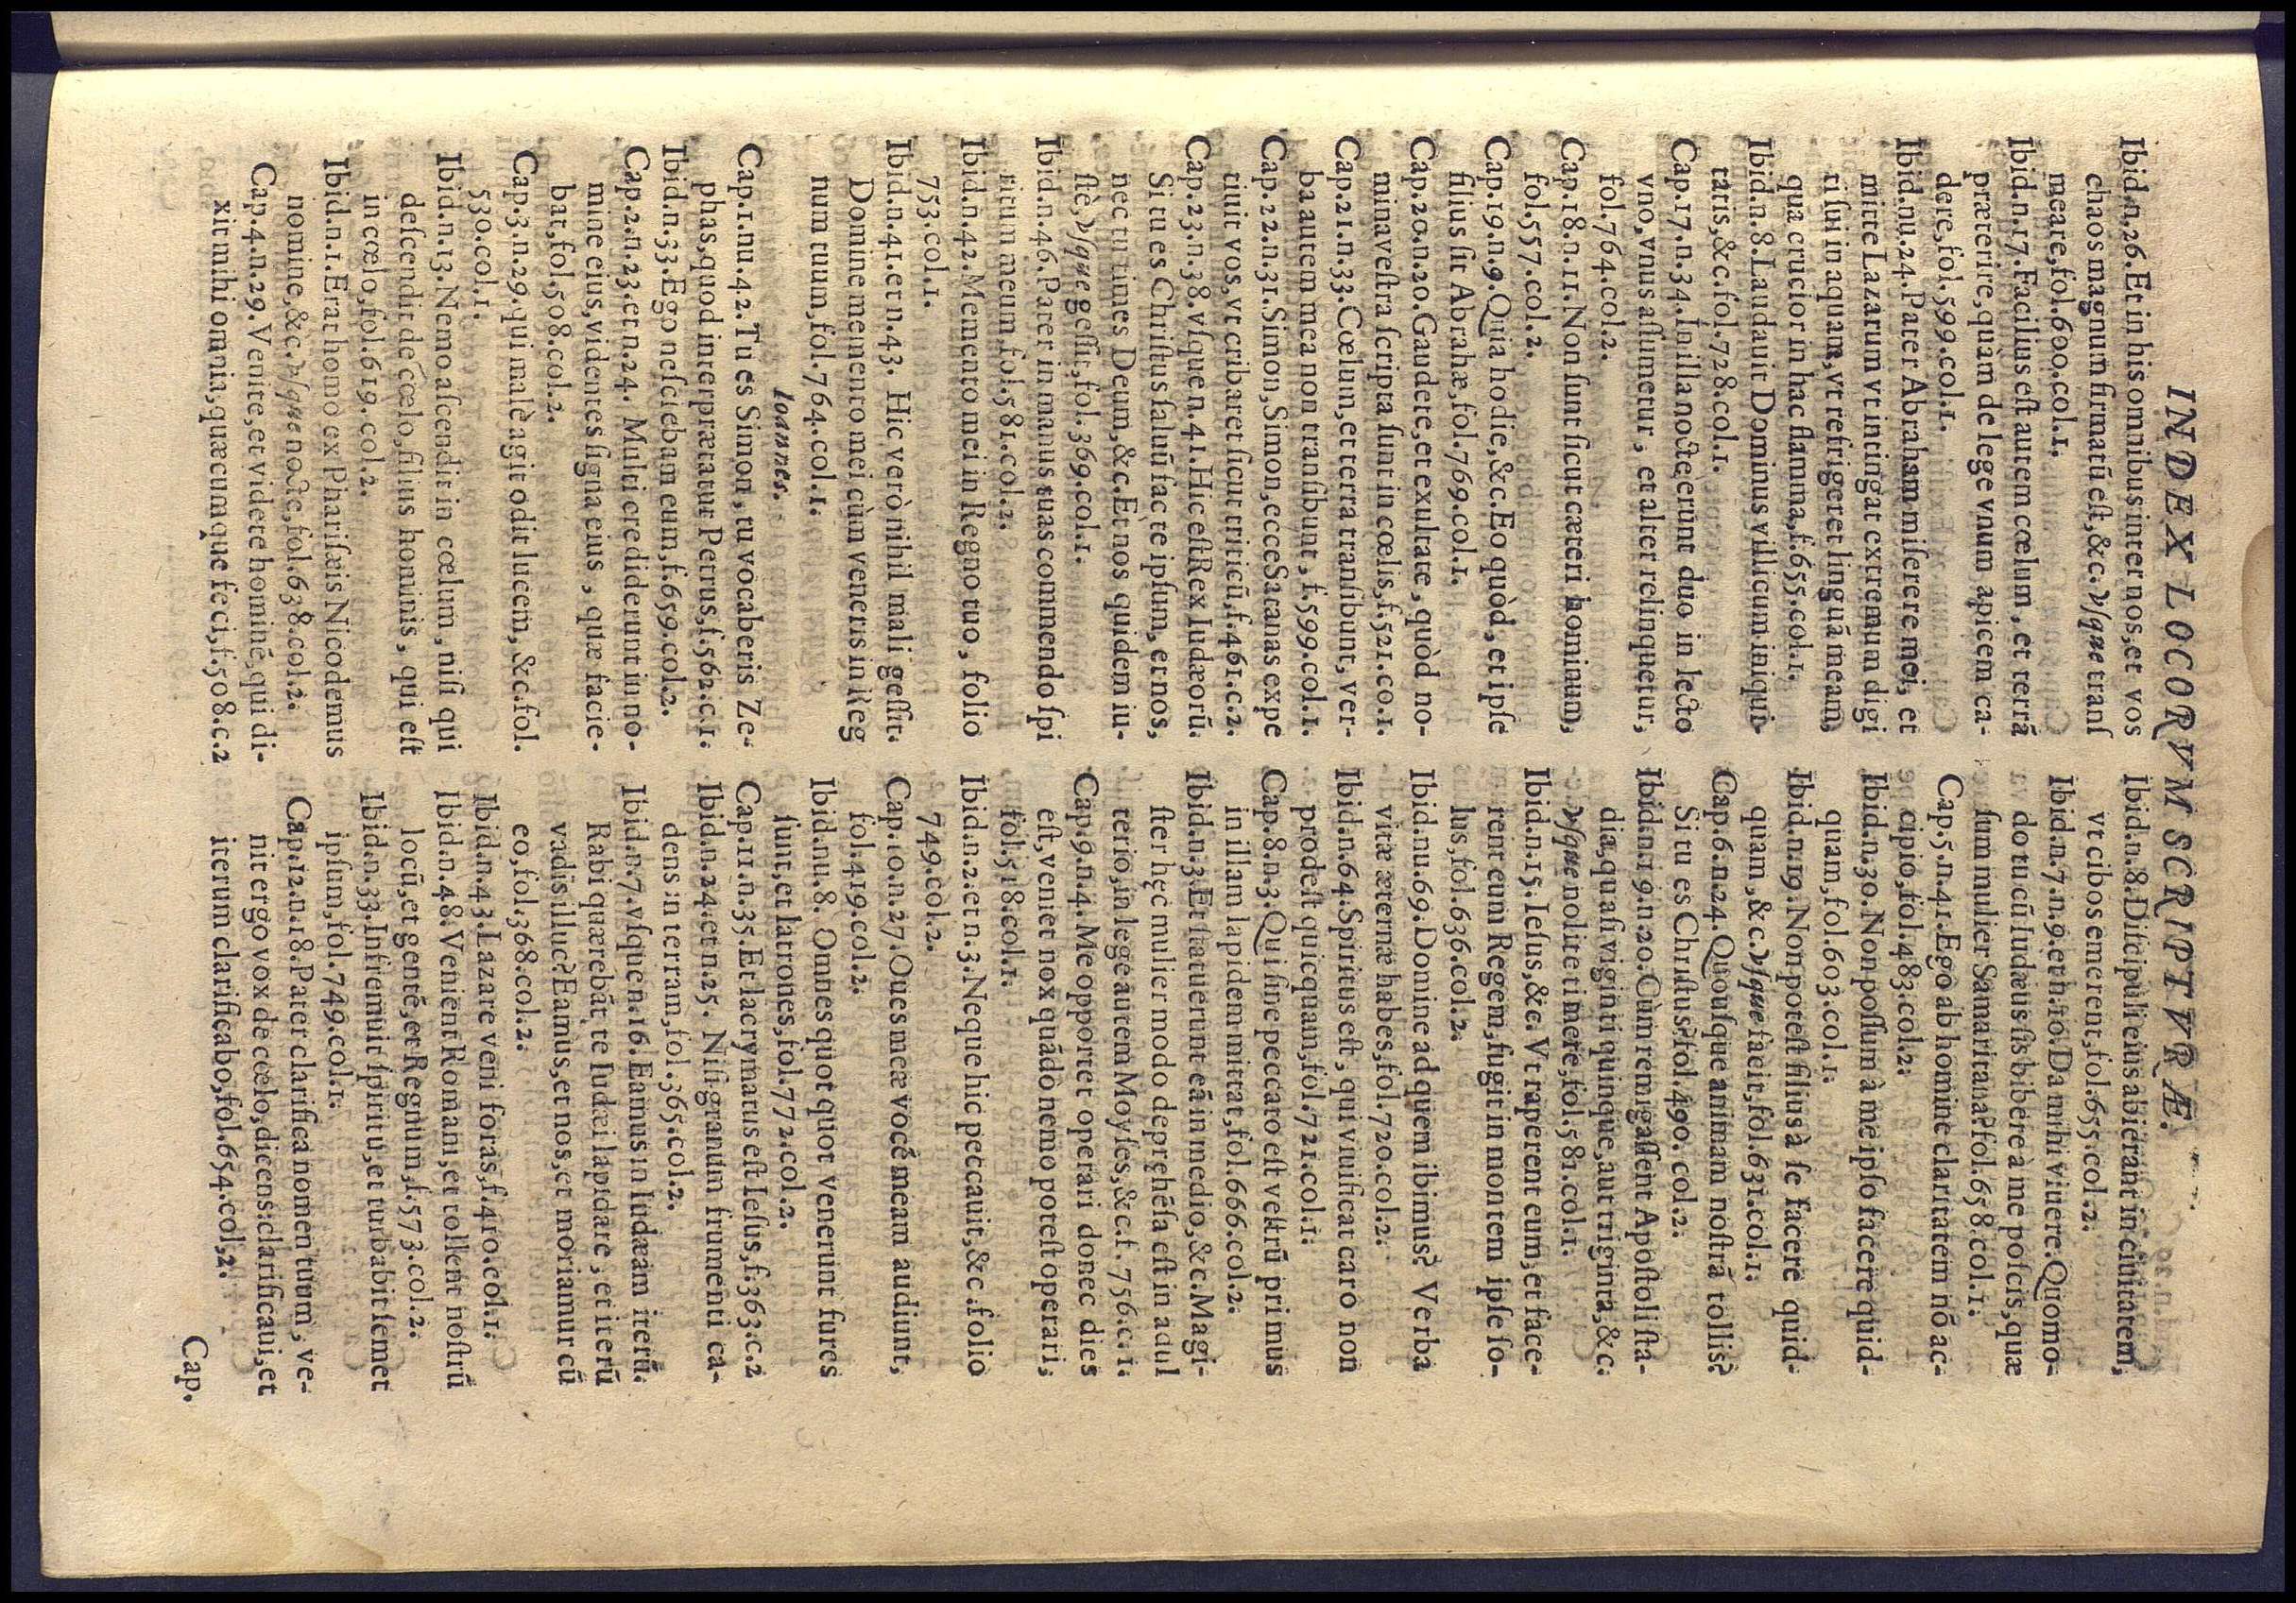 INDEX LOCORVM SCRIPTVRÆ.
Ibid.n.26.Et in his omnibus inter nos,et vos
chaos magnum firmatũ eſt,&c.vſque tranſ
meare,fol.600.col.1.
Ibid.n.17.Facilius eſt autem cœlum, et terrã
præterire,quàm de lege vnum apicem ca-
dere,fol.599.col.1.
Ibid.nu.24.Pater Abraham miſerere mei, et
mitte Lazarum vt intingat extremum digi
ti ſui in aquam,vt refrigeret linguã meam,
qua crucior in hac flamma,f.655.col.1.
Ibid.n.8.Laudauit Dominus villicum iniqui-
tatis,&c.fol.728.col.1.
Cap.17.n.34.In illa nocte,erunt duo in lecto
vno,vnus aſſumetur, et alter relinquetur,
fol.764.col.2.
Cap.18.n.11.Non ſunt ſicut cæteri hominum,
fol.557.col.2.
Cap.19.n.9.Quia hodie,&c.Eo quòd, et ipſe
filius ſit Abrahæ,fol.769.col.1.
Cap.20.n.20.Gaudete,et exultate, quòd no-
mina veſtra ſcripta ſunt in cœlis,f.521.co.1.
Cap.21.n.33.Cœlun,et terra tranſibunt, ver-
ba autem mea non tranſibunt, f.599.col.1.
Cap.22.n.31.Simon,Simon,ecce Satanas expe
tiuit vos,vt cribaret ſicut triticũ,f.461.c.2.
Cap.23.n.38.vſque n.41.Hic eſt Rex Iudæorũ.
Si tu es Chriſtus ſaluũ fac te ipſum, et nos,
nec tu times Deum,&c.Et nos quidem iu-
ſtè,vſque geſſit,fol.369.col.1.
Ibid.n.46.Pater in manus tuas commendo ſpi
ritum meum,fol.581.col.2.
Ibid.n.42.Memento mei in Regno tuo, folio
753.col.1.
Ibid.n.41.et n.43. Hic verò nihil mali geſſit.
Domine memento mei cùm veneris in Reg
num tuum,fol.764.col.1.
Ioannes.
Cap.1.nu.42.Tu es Simon, tu vocaberis Ze-
phas,quod interprætatur Petrus,f.562.c.1.
Ibid.n.33.Ego neſciebam eum,f.659.col.2.
Cap.2.n.23.et n.24. Multi crediderunt in no-
mine eius,videntes ſigna eius, quæ facie-
bat,fol.508.col.2.
Cap.3.n.29.qui malè agit odit lucem,&c.fol.
530.col.1.
Ibid.n.13.Nemo aſcendit in cœlum, niſi qui
deſcendit de cœlo,filius hominis, qui eſt
in cœlo,fol.619.col.2.
Ibid.n.1.Erat homo ex Phariſæis Nicodemus
nomine,&c.vſque nocte,fol.638.col.2.
Cap.4.n.29.Venite,et videte hominẽ,qui di-
xit mihi omnia,quæcumque feci,f.508.c.2
Ibid.n.8.Diſcipuli eius abierant in ciuitatem,
vt cibos emerent,fol.655.col.2.
Ibid.n.7.n.9.et n.10.Da mihi viuere.Quomo-
do tu cũ Iudæus ſis bibere à me poſcis,quæ
ſum mulier Samaritana?fol.658.col.1.
Cap.5.n.41.Ego ab homine claritatem nõ ac-
cipio,fol.483.col.2.
Ibid.n.30.Non poſſum à me ipſo facere quid-
quam,fol.603.col.1.
Ibid.n.19.Non poteſt filius à ſe facere quid-
quam,&c.vſque facit,fol.631.col.1.
Cap.6.n.24.Quouſque animam noſtrã tollis?
Si tu es Chriſtus?fol.490. col.2.
Ibid.n.19.n.20.Cùm remigaſſent Apoſtoli ſta-
dia,quaſi viginti quinque,aut triginta,&c.
vſque nolite timere,fol.581.col.1.
Ibid.n.15.Ieſus,&c. Vt raperent eum,et face-
rent eum Regem,fugit in montem ipſe ſo-
lus,fol.636.col.2.
Ibid.nu.69.Domine ad quem ibimus? Verba
vitæ æternæ habes,fol.720.col.2.
Ibid.n.64.Spiritus eſt, qui viuificat caro non
prodeſt quicquam,fol.721.col.1.
Cap.8.n.3.Qui ſine peccato eſt veſtrũ primus
in illam lapidem mittat,fol.666.col.2.
Ibid.n.3.Et ſtatuerunt eã in medio,&c.Magi-
ſter hęc mulier modo deprẹhẽſa eſt in adul
terio,in lege autem Moyſes,&c.f.756.c.1.
Cap.9.n.4.Me opportet operari donec dies
eſt,veniet nox quãdo nemo poteſt operari,
fol.518.col.1.
Ibid.n.2.et n.3.Neque hic peccauit,&c.folio
749.col.2.
Cap.10.n.27.Oues meæ vocẽ meam audiunt,
fol.419.col.2.
Ibid.nu.8. Omnes quot quot venerunt fures
ſunt,et latrones,fol.772.col.2.
Cap.11.n.35.Et lacrymatus eſt Ieſus,f.363.c.2
Ibid.n.24.et n.25. Niſi granum frumenti ca-
dens in terram,fol.365.col.2.
Ibid.n.7.vſque n.16.Eamus in Iudæam iterũ.
Rabi quærebãt te Iudæi lapidare, et iterũ
vadis illuc?Eamus,et nos,et moriamur cũ
eo,fol.368.col.2.
Ibid.n.43.Lazare veni foras,f.410.col.1.
Ibid.n.48.Venient Romani,et tollent noſtrũ
locũ,et gentẽ,et Regnum,f.573.col.2.
Ibid.n.33.Infremuit ſpiritu,et turbabit ſemet
ipſum,fol.749.col.1.
Cap.12.n.18.Pater clarifica nomen tuum, ve-
nit ergo vox de cœlo,dicens:clarificaui,et
iterum clarificabo,fol.654.col.2.
Cap.